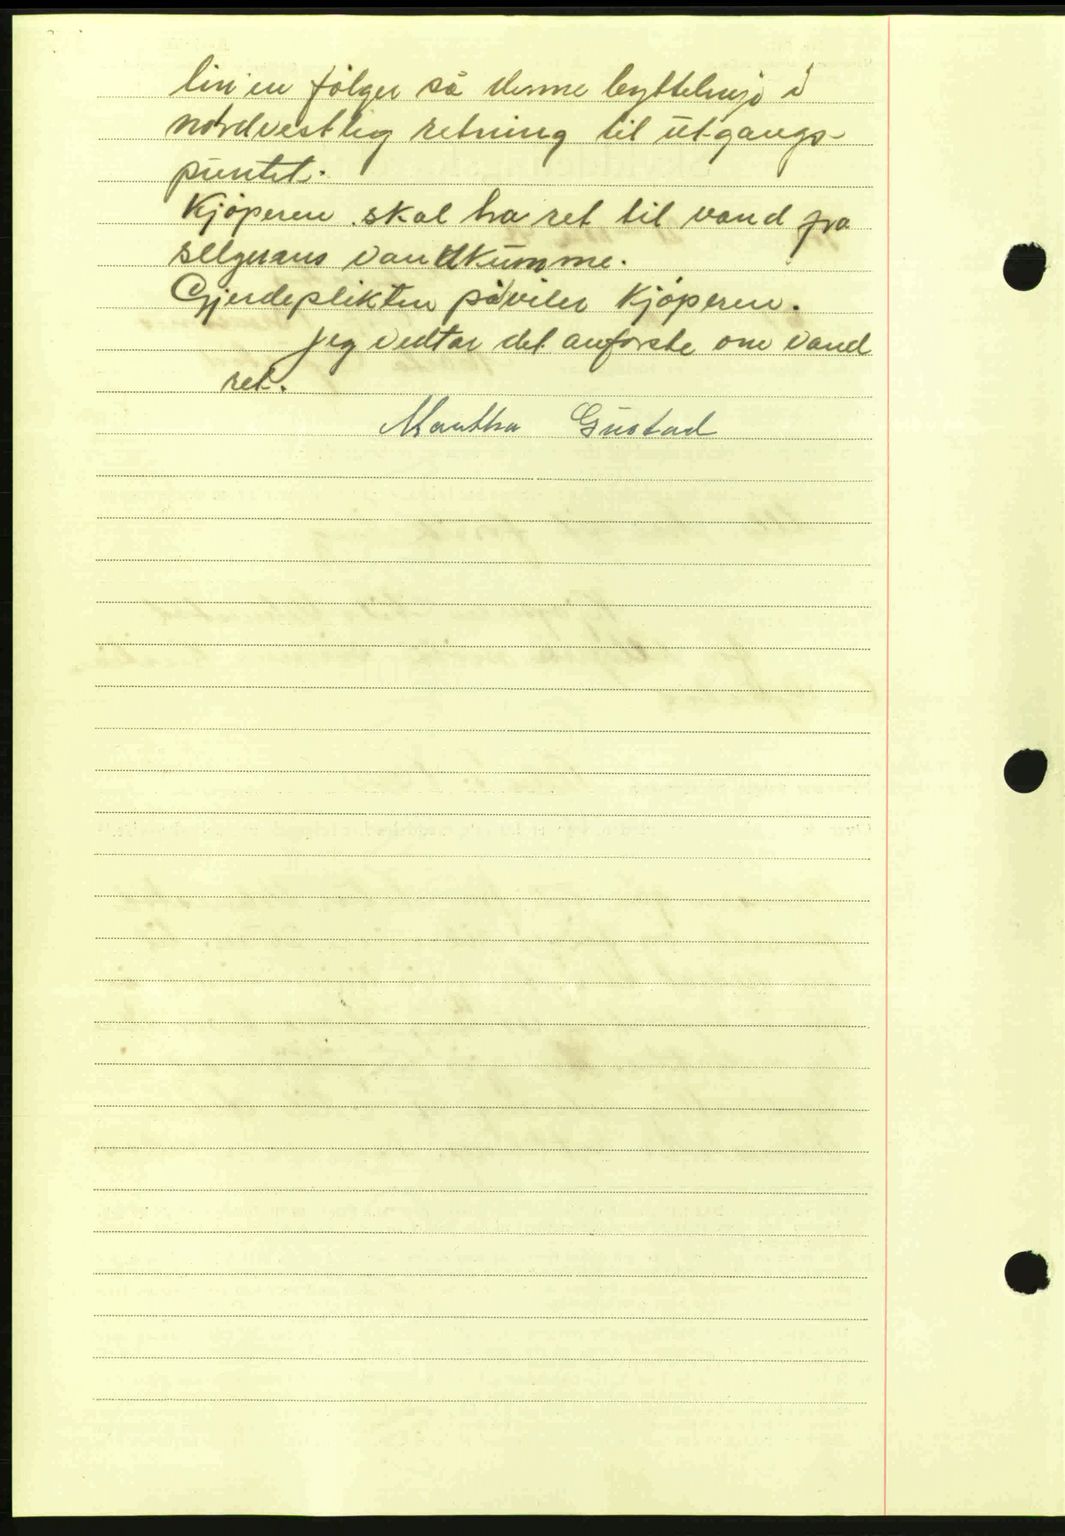 linien følger så denne byttelinje i
nordvestlig retning til utgangs-
puntet.
Kjøperen skal ha ret til vand fra
selgerens vandkumme.
Gjerdeplikten påviler kjøperen.
Jeg vedtar det anførste om vand
ret.
Martha Gustad